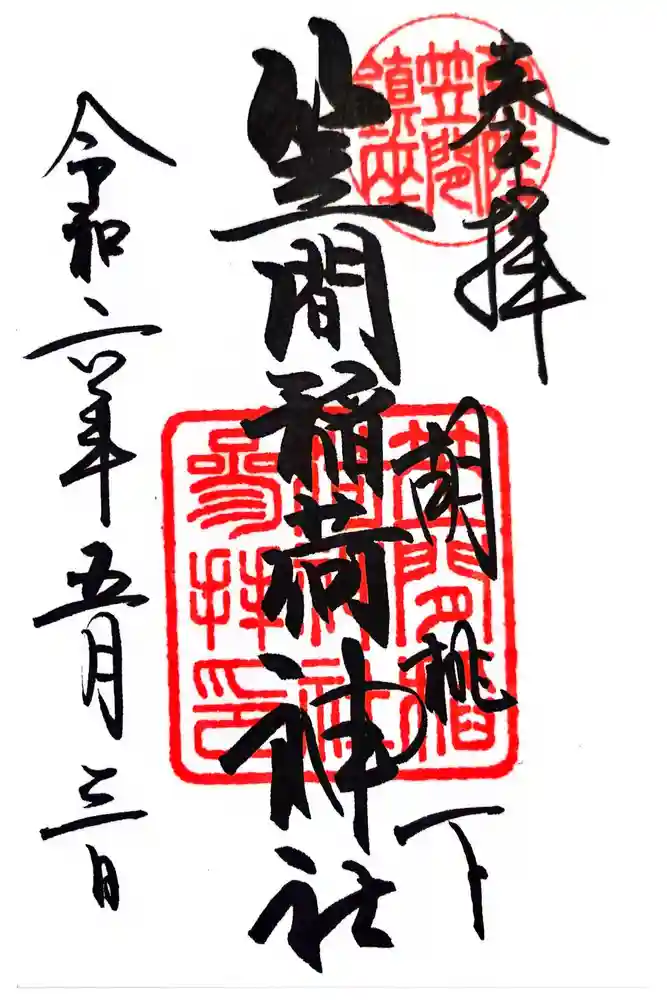 奉拝
胡桃下
常陸
笠間
鎮座
笠間稲荷神社
笠間稲
荷神社
参拝印
令和六年五月三日